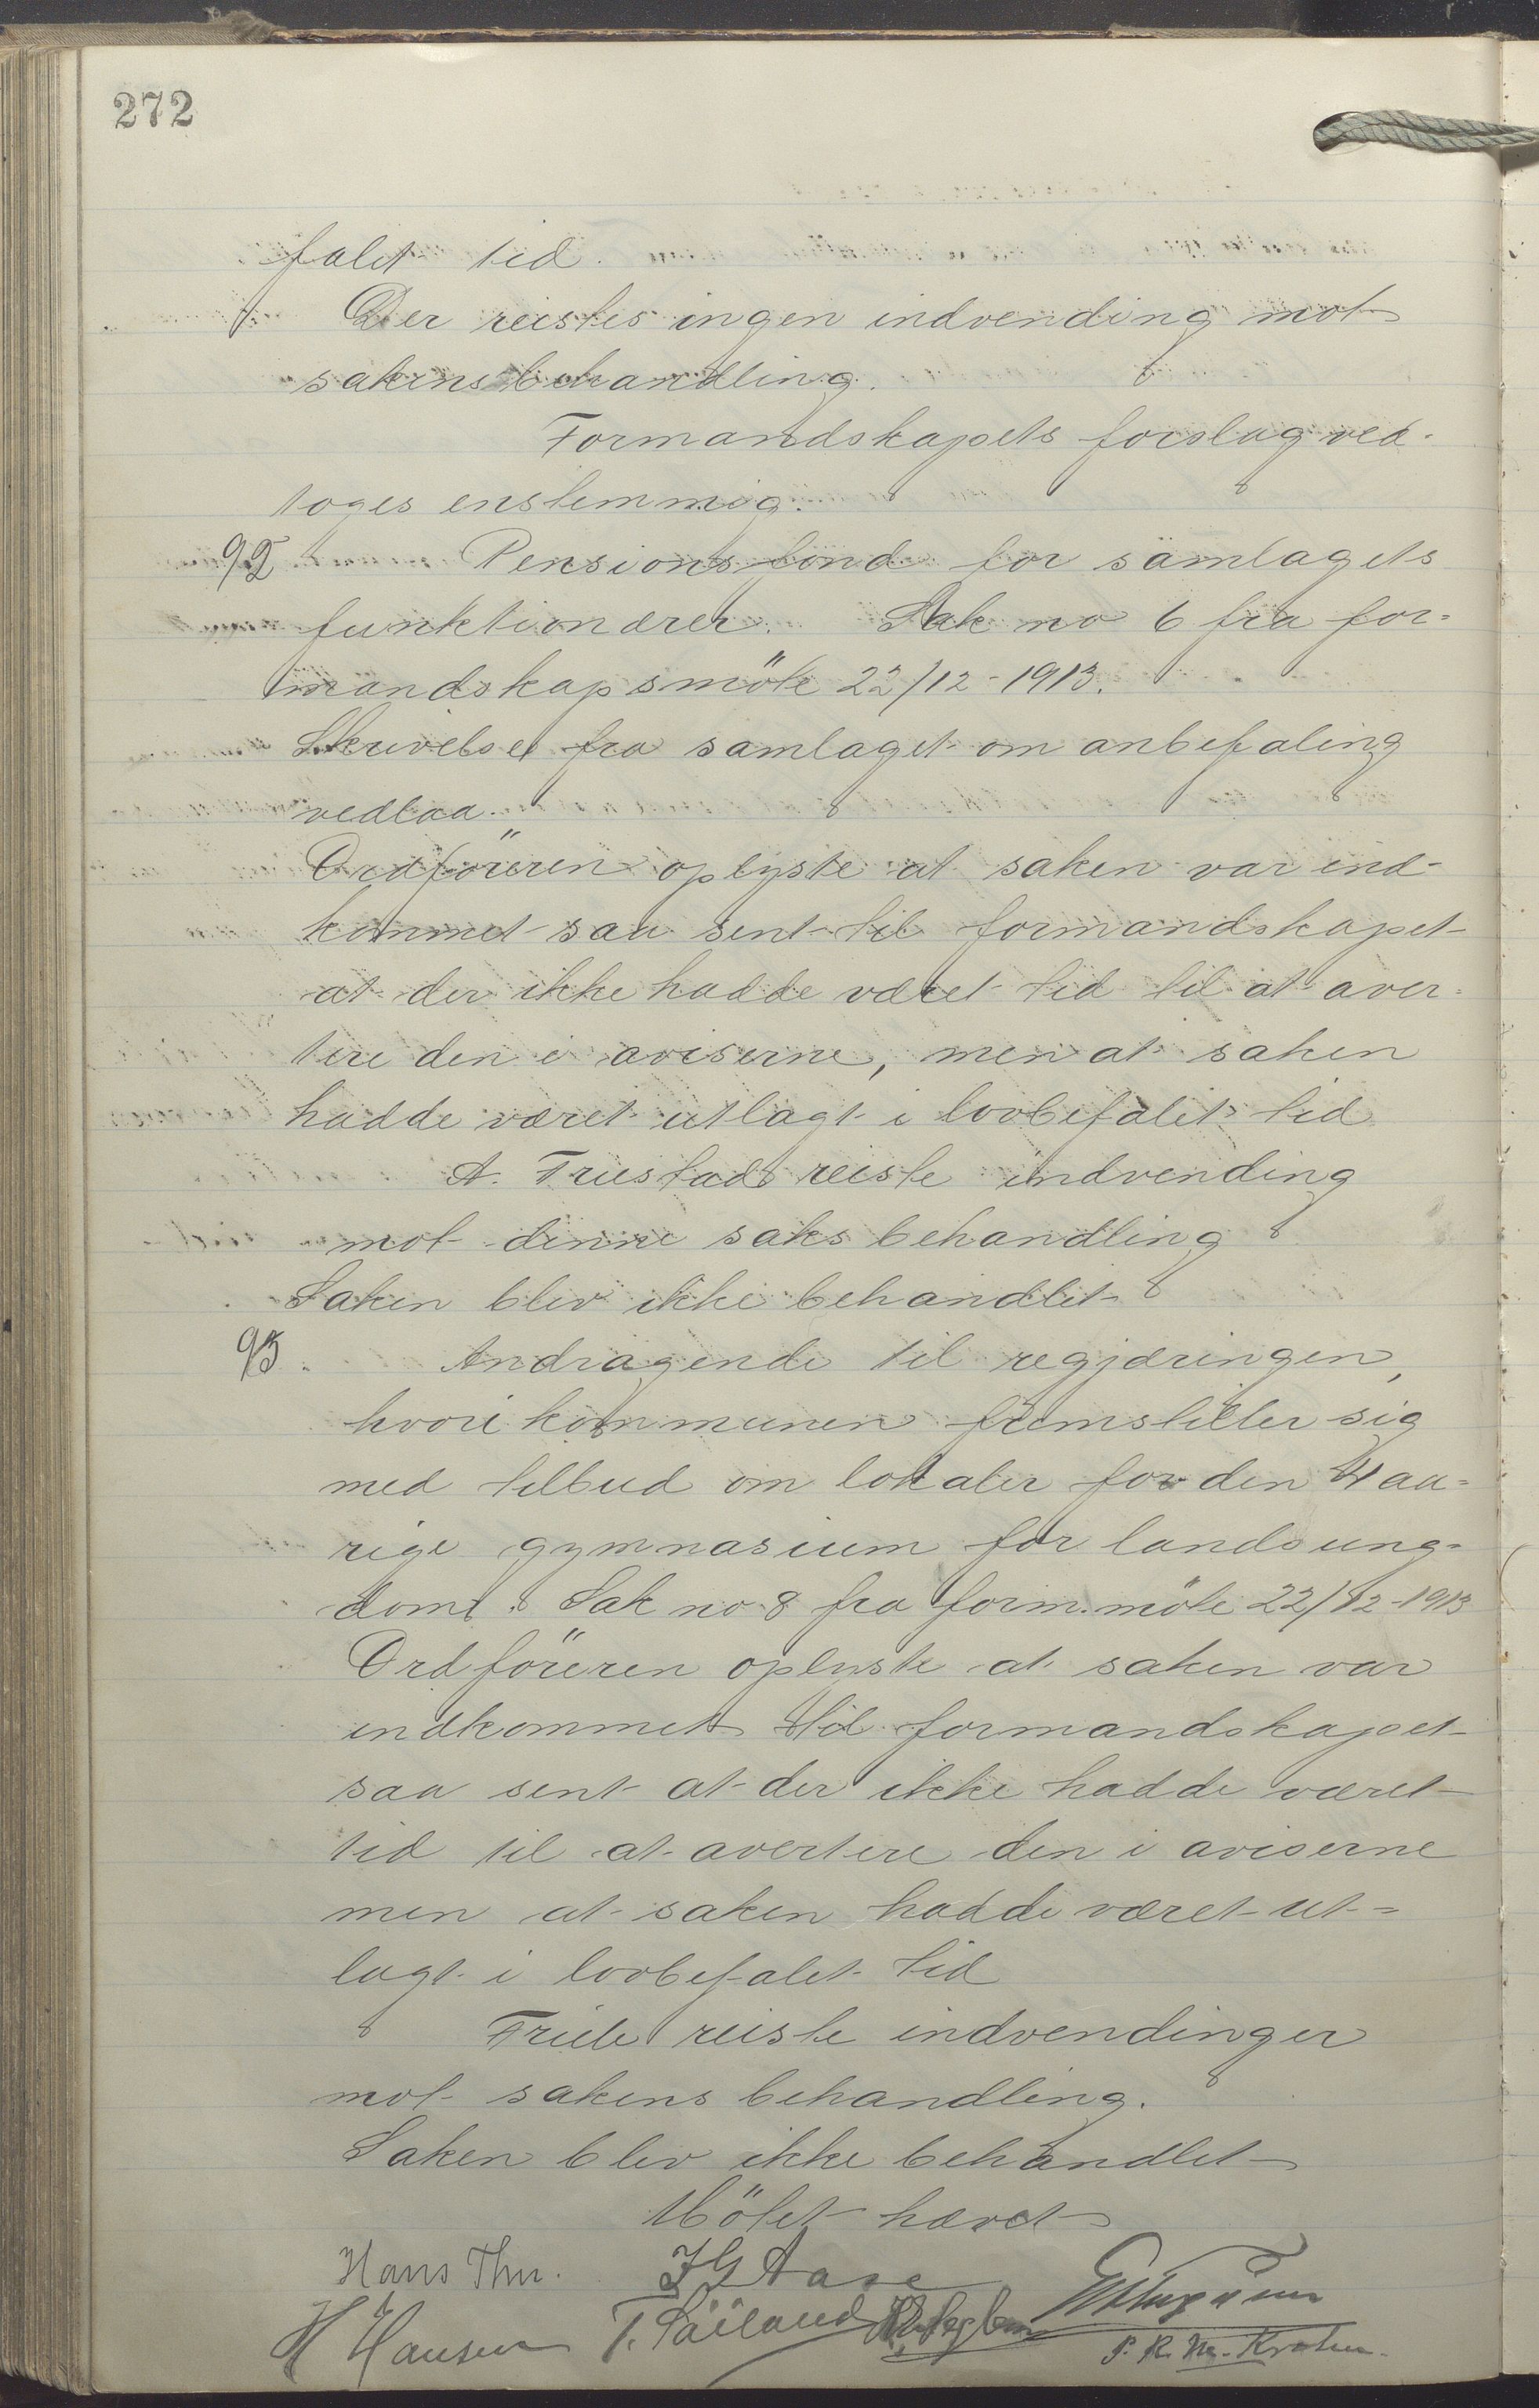 272
falet tid.
Der reistes ingen indvending mot
sakens behandling.
Formandskapets forslag ved-
toges enstemmig.
92 Pensionsfond for samlagets
funktionærer. Sak no 6 fra for-
mandskapsmöte 22/12-1913.
Skrivelse fra samlaget om anbefaling
vedlaa.
Ordföreren oplyste at saken var ind-
kommet saa sent til formandskapet
at der ikke hadde været tid til at aver-
tere den i aviserne, men at saken
hadde været utlagt i lovbefalet tid
A. Truestad reiste indvending
mot denne saks behandling
Saken blev ikke behandlet
93. Andragende til regjæringen,
hvori kommunen fremstiller sig
med tilbud om lokaler for den 4 aa-
rige gymnasium for landsung-
dom. Sak no 8 fra form. möte 22/12-1913
Ordföreren oplyste at saken var
indkommet til formandskapet
saa sent at der ikke hadde været
tid til at avertere den i aviserne
men at saken hadde været ut-
lagt i lovbefalet tid
reiste indvendinger
mot sakens behandling.
Saken blev ikke behandlet
Mötet hævet
Hans Thu. J G Aase
H Hansen T. Söiland P. R. M. Krohn.